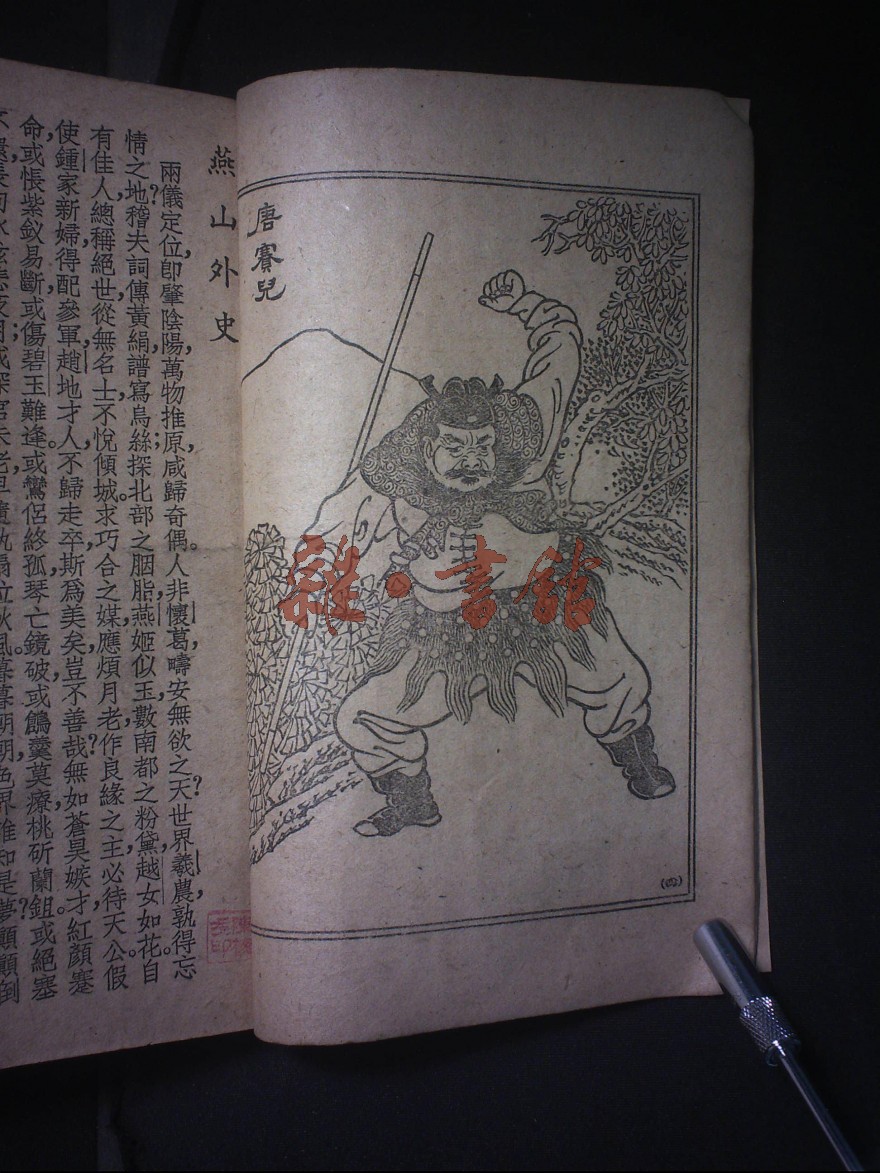 唐賽兒
(四)
雜·書館
燕山外史
兩儀定位,卽肇陰陽,萬物推原,咸歸奇偶。人非懷葛,疇安無欲之天?世界羲農,孰得忘
情之地?稽夫詞傳黃絹,譜寫烏絲;探北部之胭脂,燕姬似玉,數南都之粉黛,越女如花。自
有佳人,總稱絕世,從無名士,不悅傾城。求巧合之媒,應煩月老,作良緣之主,必待天公。假
使鍾家新婦,得配參軍,趙地才人,不歸走卒,斯爲美矣,豈不善哉?無如蒼昊嫉才,紅顏蹇
命,或悵紫釵易斷,或傷碧玉難逢。或鸞侶終孤,琴亡鏡破,或鶊羹莫療,桃斫蘭鉏。或絕塞